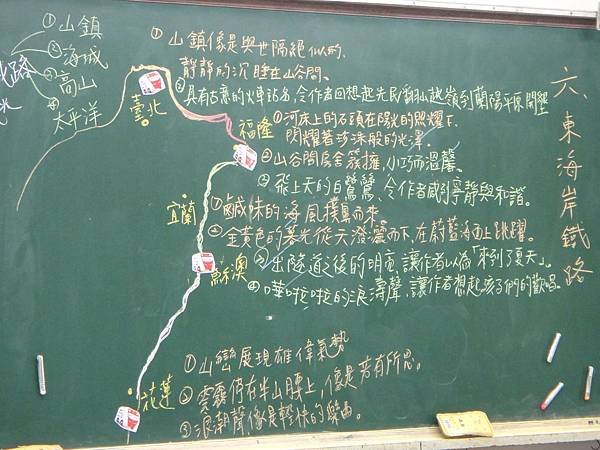 六、東海岸鐵路
路
①山鎮
②海城
③高山
④太平洋
臺北
①山鎮像是與世隔絕似的,
靜靜的沉睡在山谷間。
②具有古意的火車站名,令作者回想起先民翻山越嶺到蘭陽平原開墾
福隆
①河床上的石頭在陽光的照耀下,
閃耀著珍珠般的光澤。
②山谷間房舍簇擁,小巧而溫馨。
③飛上天的白鷺鷥,令作者感到寧靜與和諧。
宜蘭
①鹹味的海風撲鼻而來。
②金黃色的暮光從天潑灑而下,在蔚藍海面上跳躍。
蘇澳
③出隧道之後的明亮,讓作者以為「來到了夏天」。
④嘩啦啦的浪濤聲,讓作者想起孩子們的歡唱。
花蓮
①山巒展現雄偉氣勢
②雲霧停在半山腰上,像是若有所思。
③浪潮聲像是輕快的樂曲。